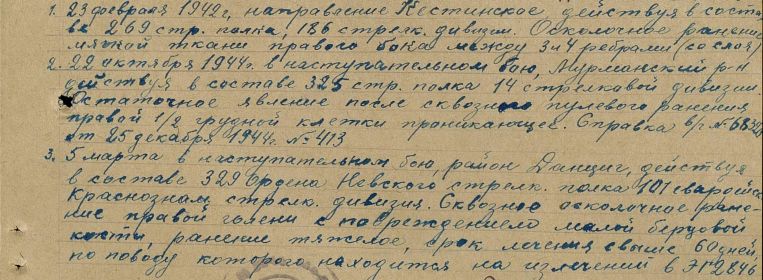 1. 23 февраля 1942 г, направление Кестинское, действуя в соста-
ве 269 стр. полка, 186 стрелк. дивизии. Осколочное ранение
мягкой ткани правого бока между 3 и 4 ребрами (со слов)
2. 22 октября 1944 г. в наступательном бою, Мурманский р-н
действуя в составе 325 стр. полка 14 стрелковой дивизии.
Остаточное явление после сквозного пулевого ранения
правой 1/2 грудной клетки проникающее. Справка в/г №
от 25 декабря 1944 г. № 413
3. 5 марта в наступательном бою, район Данциг, действуя
в составе 329 ордена Невского стрелк. полка 101 гвардейск
Краснознам стрелк. дивизия. Сквозное осколочное ране-
ние правой голени с повреждением малой берцовой
кости, ранение тяжелое, срок лечения свыше 60 дней,
по поводу которого находится на излечении в ЭГ 2846